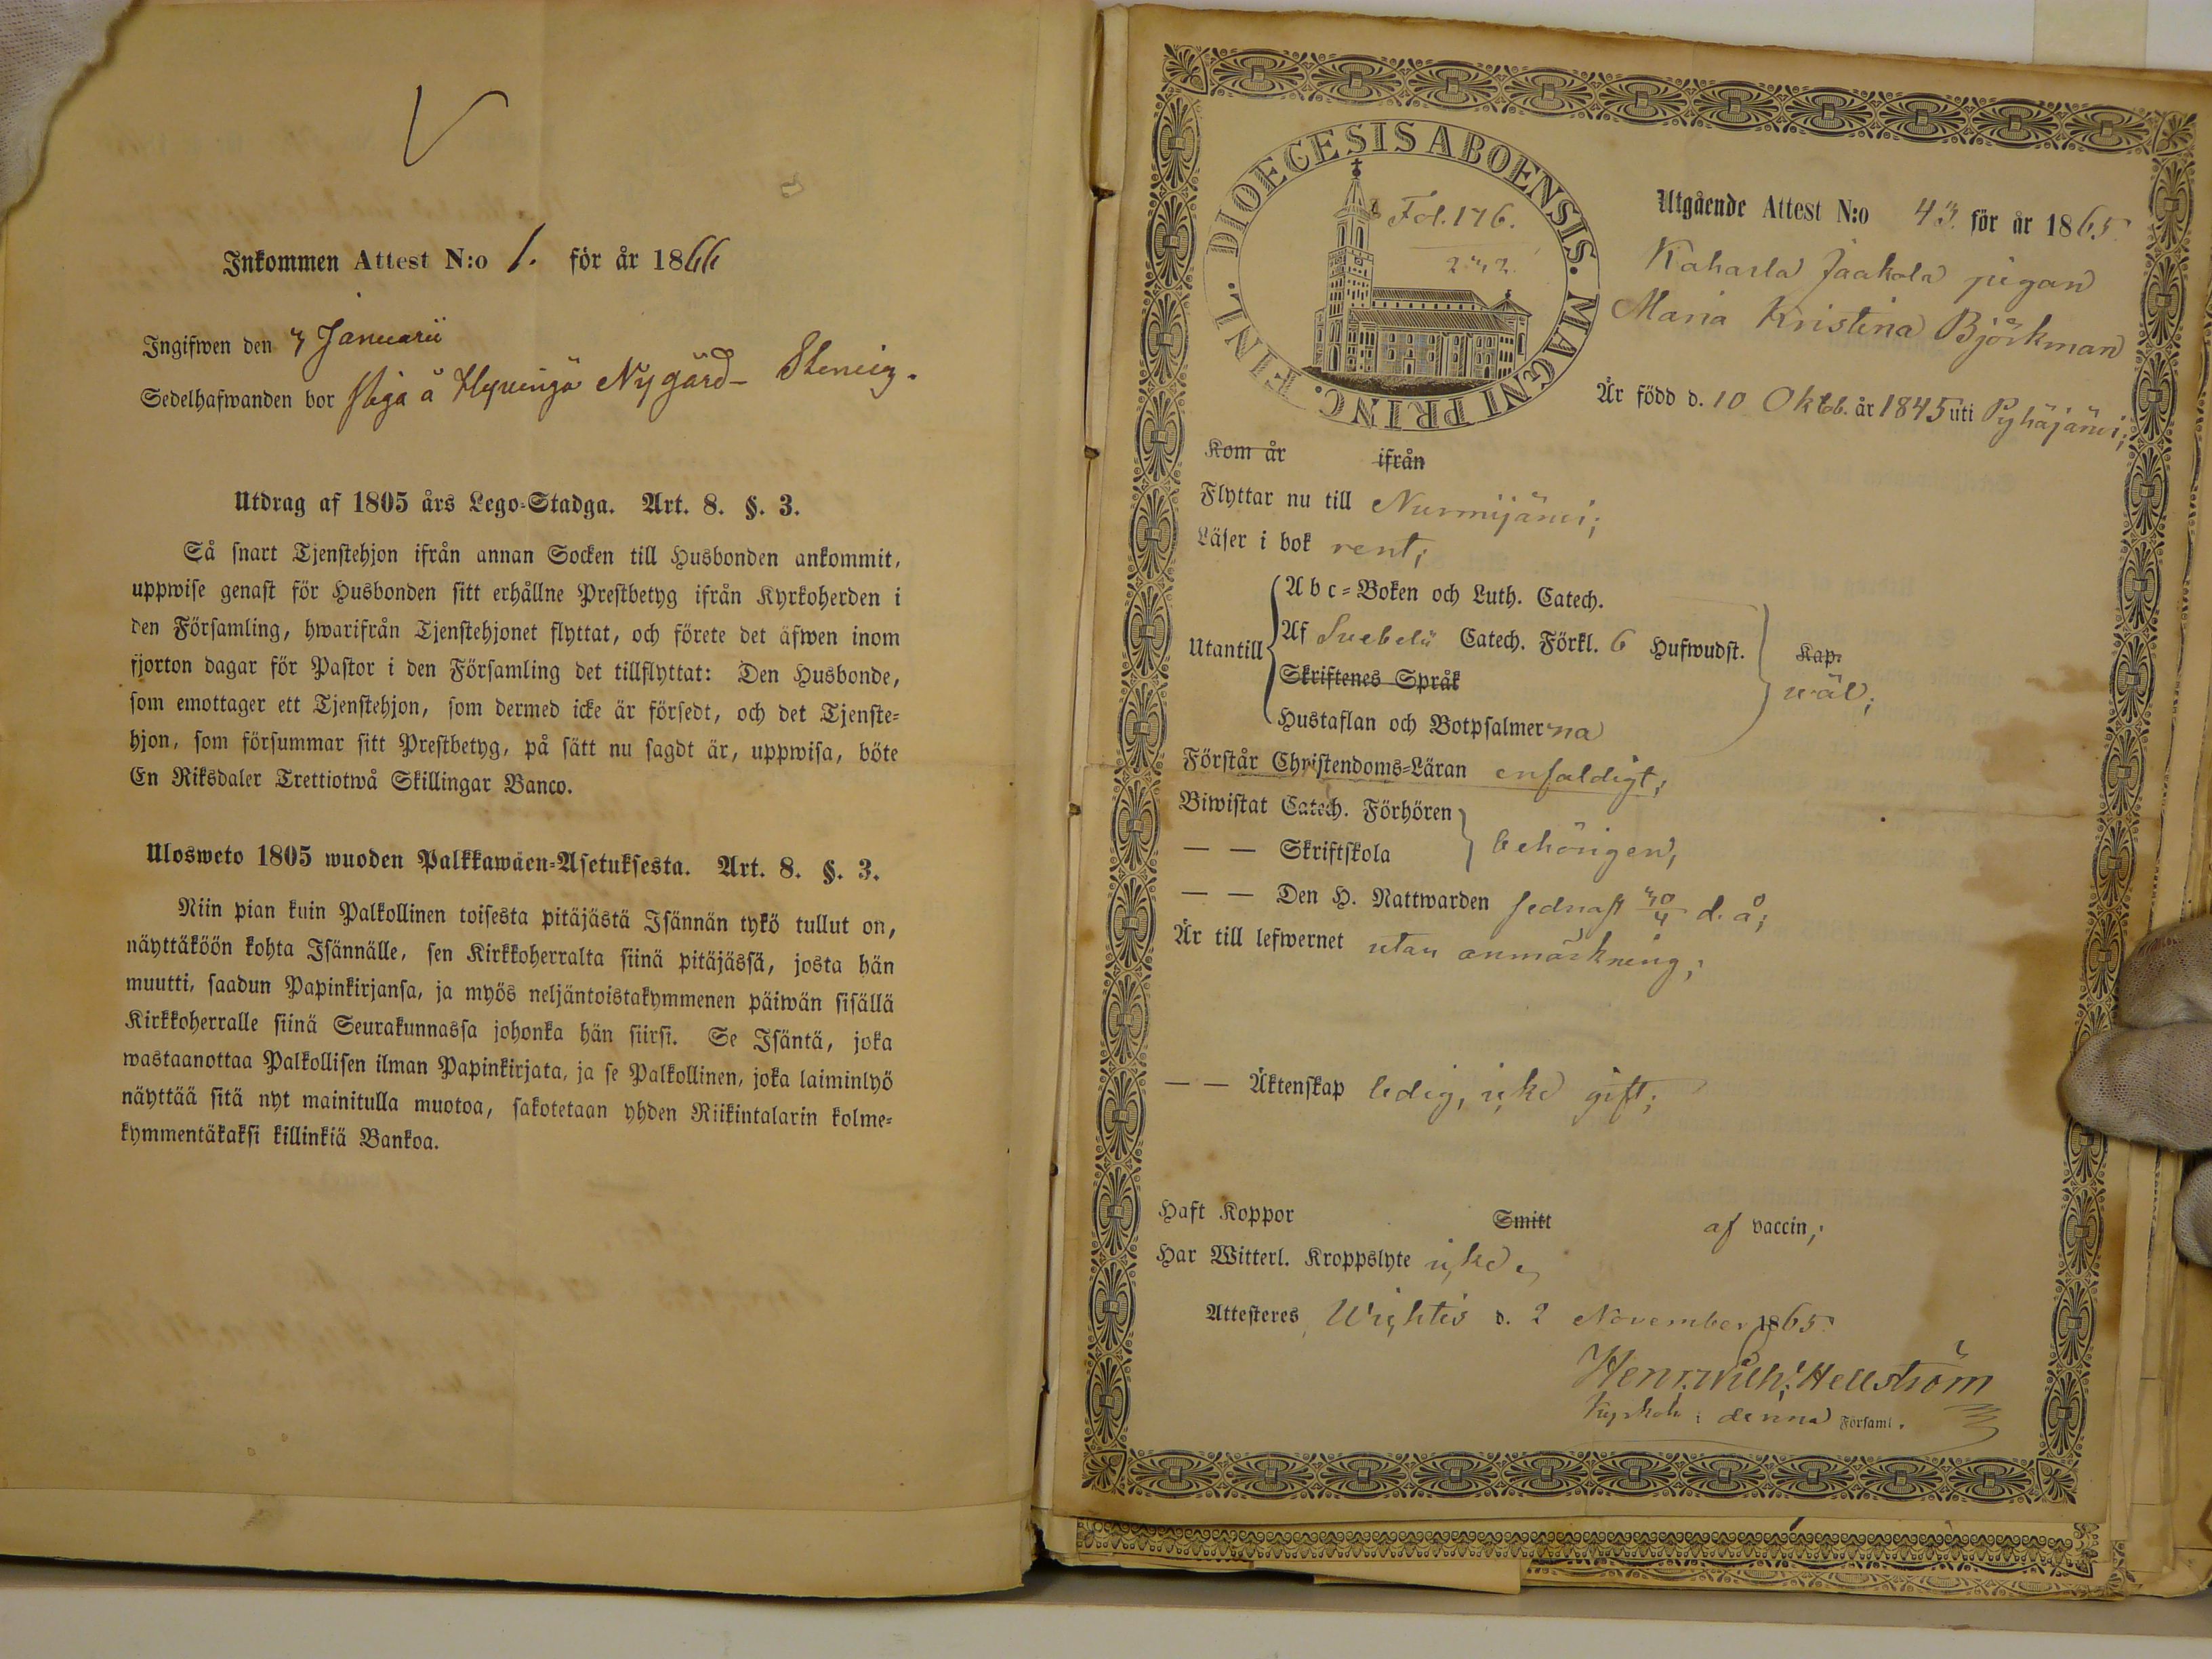 Inkommen Attest N:o 1. för år 1866
Ingifwen den 7 Januarii
Sedelhafwanden bor Piga å Hyvingä Nygård-
Utdrag af 1805 års Lego-Stadga. Art. 8. §. 3.
Så snart Tjenstehjon ifrån annan Socken till Husbonden ankommit,
uppwise genast för Husbonden sitt erhållne Prestbetyg ifrån Kyrkoherden i
den Församling, hwarifrån Tjenstehjonet flyttat, och förete det äfwen inom
fjorton dagar för Pastor i den Församling det tillflyttat: Den Husbonde,
som emottager ett Tjenstehjon, som dermed icke är försedt, och det Tjenste-
hjon, som försummar sitt Prestbetyg, på sätt nu sagdt är, uppwisa, böte
En Riksdaler Trettiotwå Skillingar Banco.
Ulosweto 1805 wuoden Palkkawäen-Asetuksesta. Art. 8. §. 3.
Niin pian kuin Palkollinen toisesta pitäjästä Isännän tykö tullut on,
näyttäköön kohta Isännälle, sen Kirkkoherralta siinä pitäjässä, josta hän
muutti, saadun Papinkirjansa, ja myös neljäntoistakymmenen päiwän sisällä
Kirkkoherralle siinä Seurakunnassa johonka hän siirsi. Se Isäntä, joka
wastaanottaa Palkollisen ilman Papinkirjata, ja se Palkollinen, joka laiminlyö
näyttää sitä nyt mainitulla muotoa, sakotetaan yhden Riikintalarin kolme-
kymmentäkaksi killinkiä Bankoa.
DIOECESIS ABOENSIS. MAGNI PRINC. FINL.
Fol. 176.
Utgående Attest N:o 43 för år 1865.
Kaharla Jaakola pigan
Maria Kristina Björkman
Är född d. 10 Oktob. år 1845 uti Pyhäjärvi;
Kom år ifrån
Flyttar nu till Nurmijärvi;
Läser i bok rent;
Utantill
Abc-Boken och Luth. Catech.
Af Svebelii Catech. Förkl. 6 Hufwudst.
Skriftenes Språk
Hustaflan och Botpsalmerna
Kap.
wäl;
Förstår Christendoms-Läran enfaldigt;
Biwistat Catech. Förhören
— — Skriftskola
behörigen;
— — Den H. Nattwarden sednast 30/4 d. å;
Är till lefwernet utan anmärkning;
— — Äktenskap ledig, icke gift;
Haft Koppor Smitt af vaccin;
Har Witterl. Kroppslyte icke,
Attesteres Wichtis d. 2 November 1865.
Henr. Wilh. Hellström
Kyrkoh. i denna Församl.